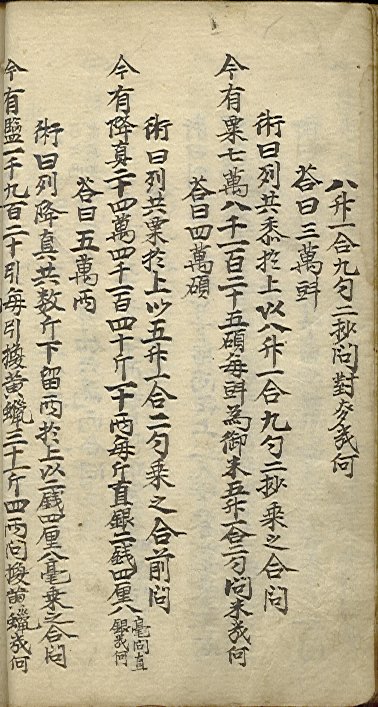 八升一合九勺二抄問對麥幾何
荅曰三萬㪷
術曰列共黍於上以八升一合九勺二抄乘之合問
今有粟七萬八千一百二十五碩每㪷為御米五升一合二勺問米幾何
荅曰四萬碩
術曰列共粟於上以五升一合二勺乘之合前問
今有降真二十四萬四千一百四十斤一十兩每斤直銀二錢四厘八毫問直銀幾何
荅曰五萬兩
術曰列降真共數斤下留兩於上以二錢四厘八毫乘之合問
今有鹽一千九百二十引每引換黃蠟三十一斤四兩問換黃蠟幾何